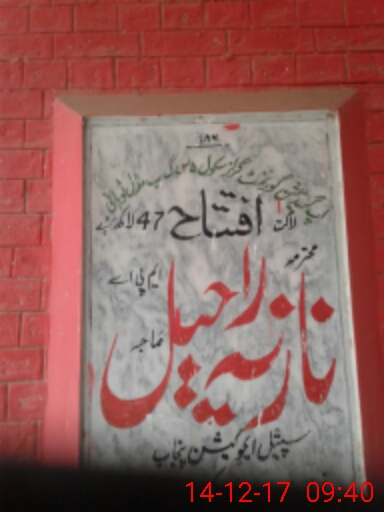 ۷۸۶
اپ گریڈیشن گورنمنٹ گرلز سکول
افتتاح
لاگت 47 لاکھ روپے
محترمہ
نازیہ راحیل
ایم پی اے
صاحبہ
سپیشل ایجوکیشن پنجاب
14-12-17 09:40